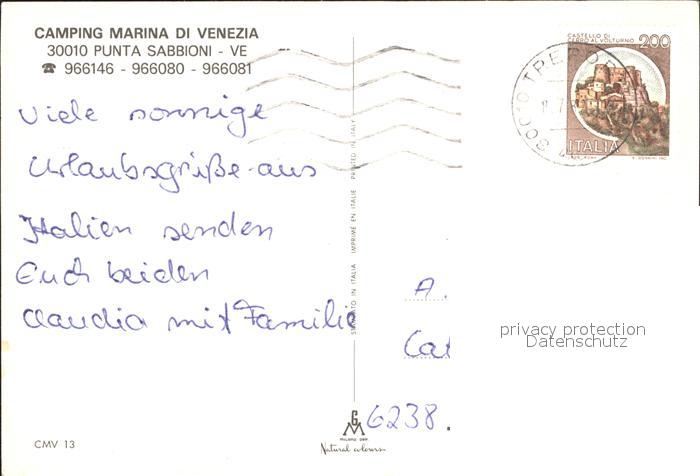 CAMPING MARINA DI VENEZIA
30010 PUNTA SABBIONI - VE
☎ 966146 - 966080 - 966081
Viele sonnige
Urlaubsgrüße aus
Italien senden
Euch beiden
Claudia mit Familie
STAMPATO IN ITALIA IMPRIMÉ EN ITALIE PRINTED IN ITALY
CASTELLO DI
CERRO AL VOLTURNO 200
ITALIA
A.
6238.
privacy protection
Datenschutz
CMV 13
Natural colours